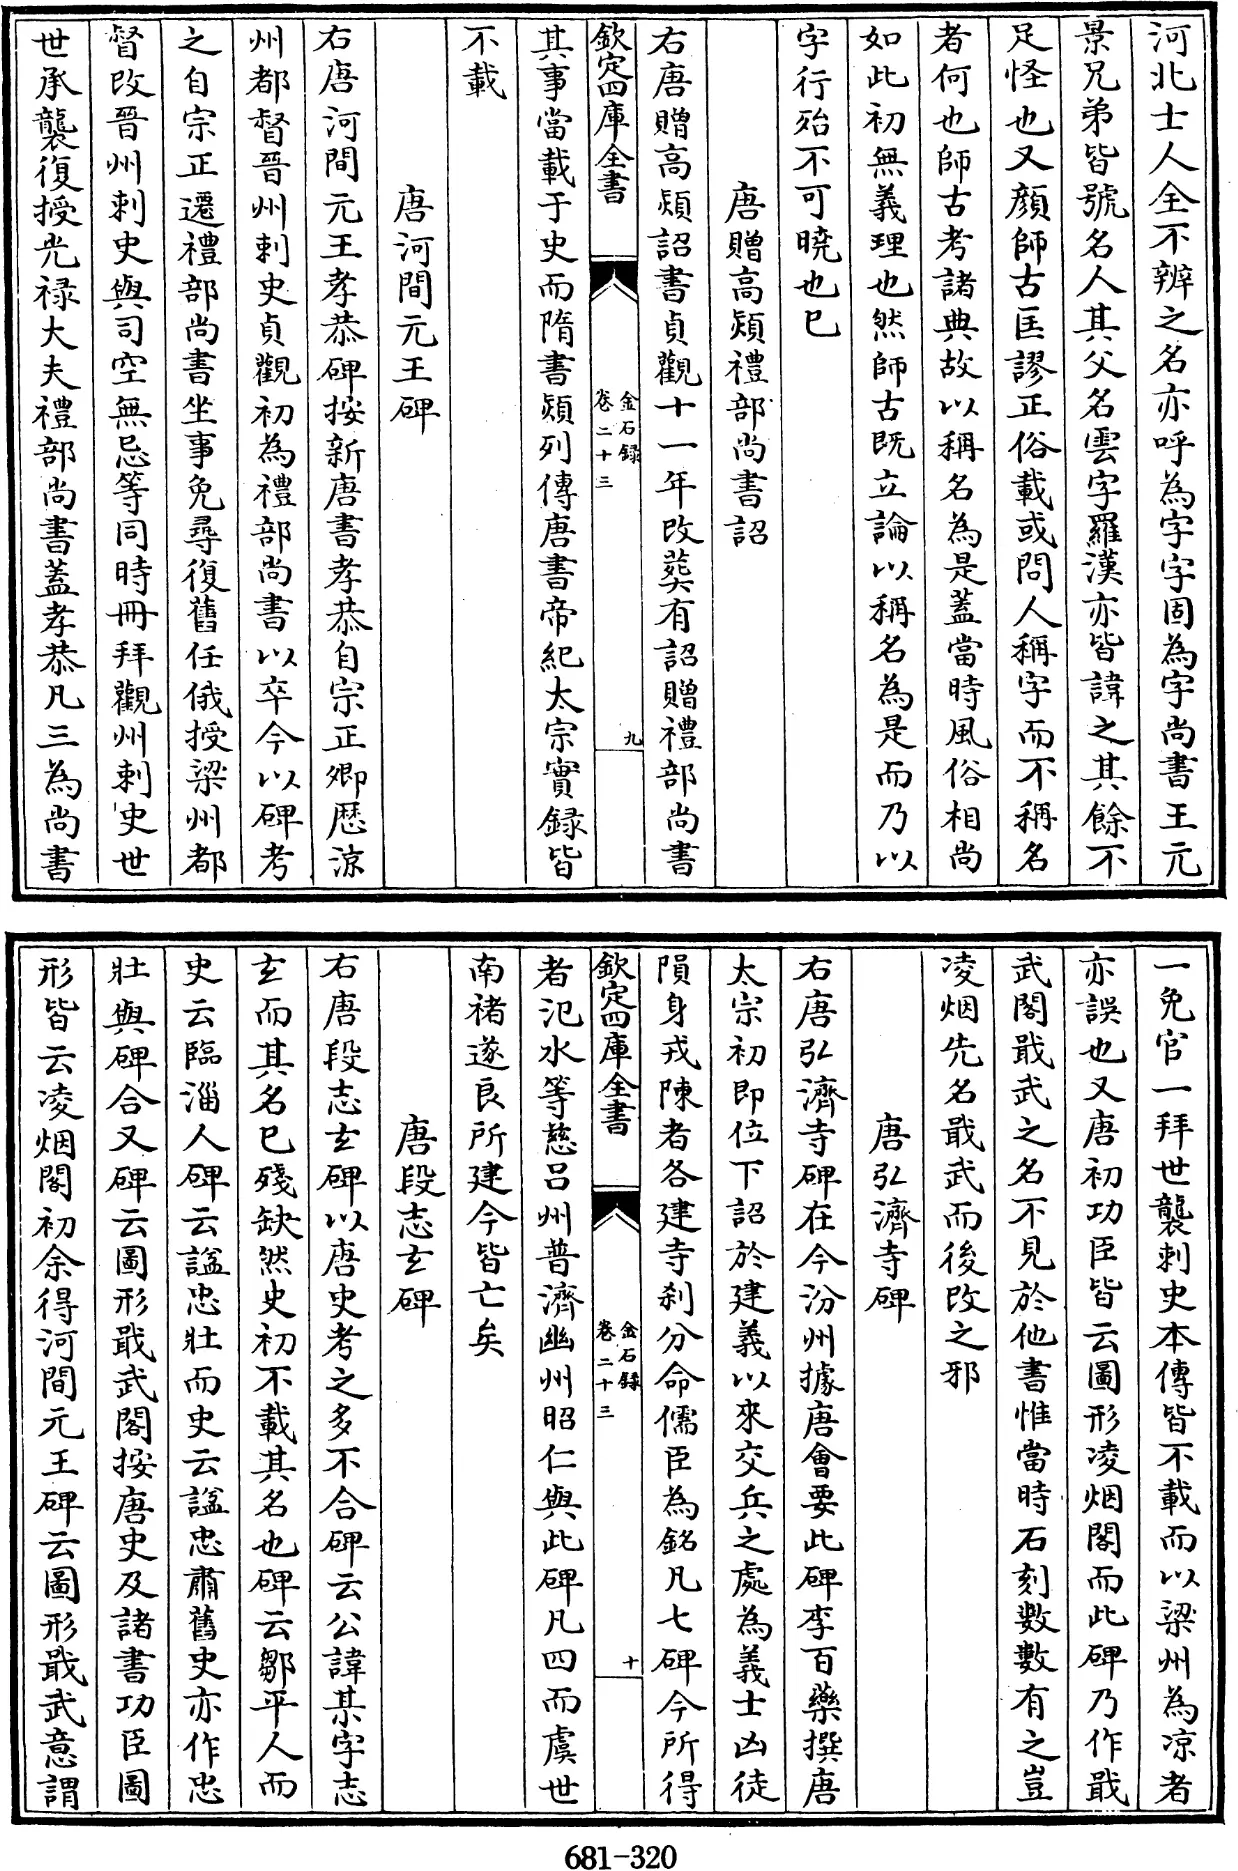 河北士人全不辨之名亦呼為字字固為字尚書王元
景兄弟皆號名人其父名雲字羅漢亦皆諱之其餘不
足怪也又顔師古匡謬正俗載或問人稱字而不稱名
者何也師古考諸典故以稱名為是蓋當時風俗相尚
如此初無義理也然師古既立論以稱名為是而乃以
字行殆不可曉也已
唐贈高熲禮部尚書詔
右唐贈高熲詔書貞觀十一年改葬有詔贈禮部尚書
欽定四庫全書
金石錄
卷二十三
九
其事當載于史而隋書熲列傳唐書帝紀太宗實錄皆
不載
唐河間元王碑
右唐河間元王孝恭碑按新唐書孝恭自宗正卿歷涼
州都督晉州刺史貞觀初為禮部尚書以卒今以碑考
之自宗正遷禮部尚書坐事免尋復舊任俄授梁州都
督改晉州刺史與司空無忌等同時冊拜觀州刺史世
世承襲復授光禄大夫禮部尚書蓋孝恭凡三為尚書
一免官一拜世襲刺史本傳皆不載而以梁州為涼者
亦誤也又唐初功臣皆云圖形凌烟閣而此碑乃作戢
武閣戢武之名不見於他書惟當時石刻數數有之豈
凌烟先名戢武而後改之邪
唐弘濟寺碑
右唐弘濟寺碑在今汾州據唐會要此碑李百藥撰唐
太宗初即位下詔於建義以來交兵之處為義士凶徒
隕身戎陳者各建寺刹分命儒臣為銘凡七碑今所得
欽定四庫全書
金石錄
卷二十三
十
者汜水等慈吕州普濟豳州昭仁與此碑凡四而虞世
南禇遂良所建今皆亡矣
唐段志玄碑
右唐段志玄碑以唐史考之多不合碑云公諱某字志
玄而其名已殘缺然史初不載其名也碑云鄒平人而
史云臨淄人碑云諡忠壯而史云諡忠肅舊史亦作忠
壯與碑合又碑云圖形戢武閣按唐史及諸書功臣圖
形皆云凌烟閣初余得河間元王碑云圖形戢武意謂
681-320